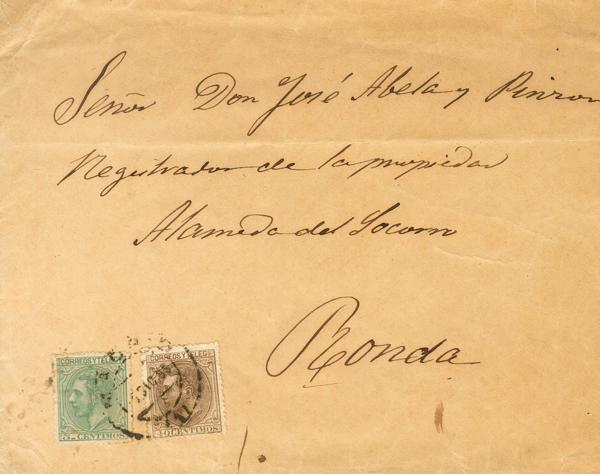 Señor Don José Abela y Pinzon
Registrador de la propiedad
Alameda del Socorro
Ronda
CORREOS Y TELEG
CORREOS Y TELEG
5 CENTIMOS
10 CENTIMOS